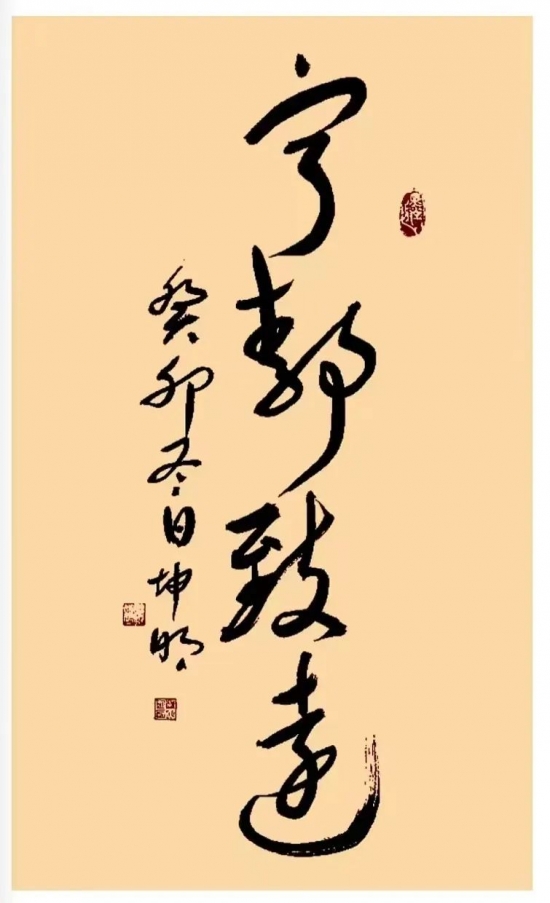 宁静致远
癸卯冬日坤明